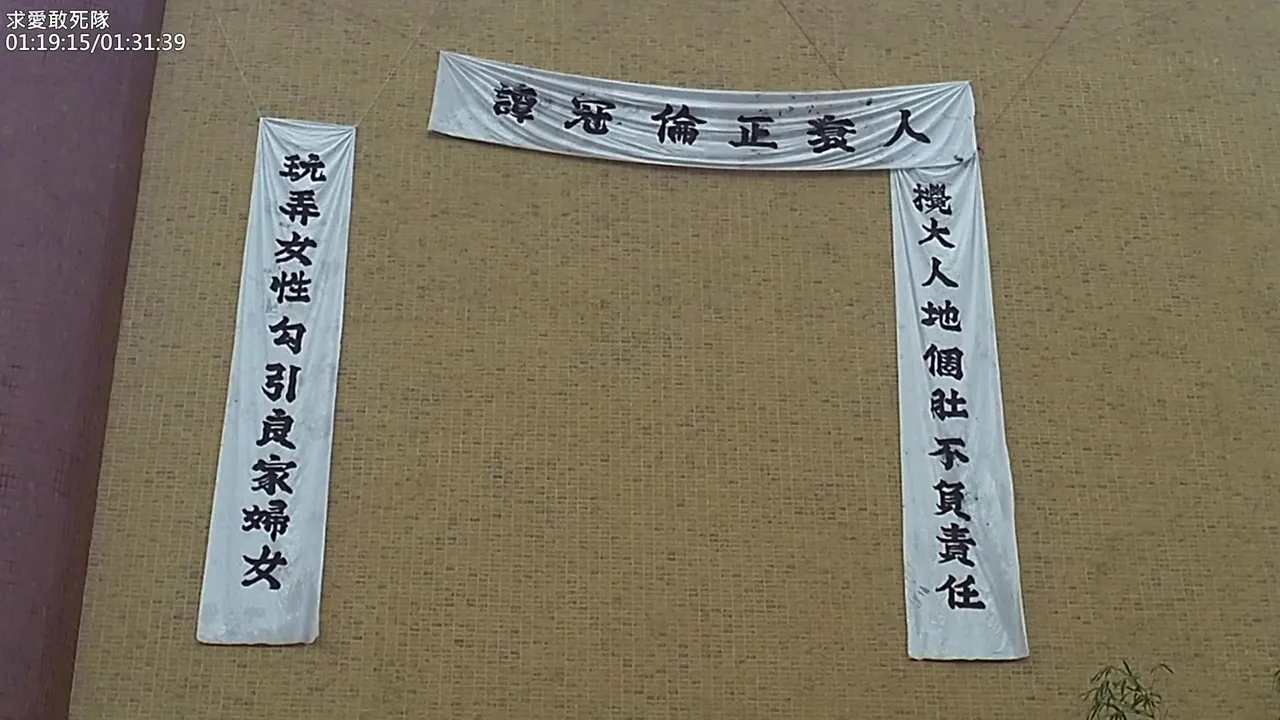 求愛敢死隊
01:19:15/01:31:39
譚冠倫正衰人
玩弄女性勾引良家婦女
攪大人地個肚不負責任